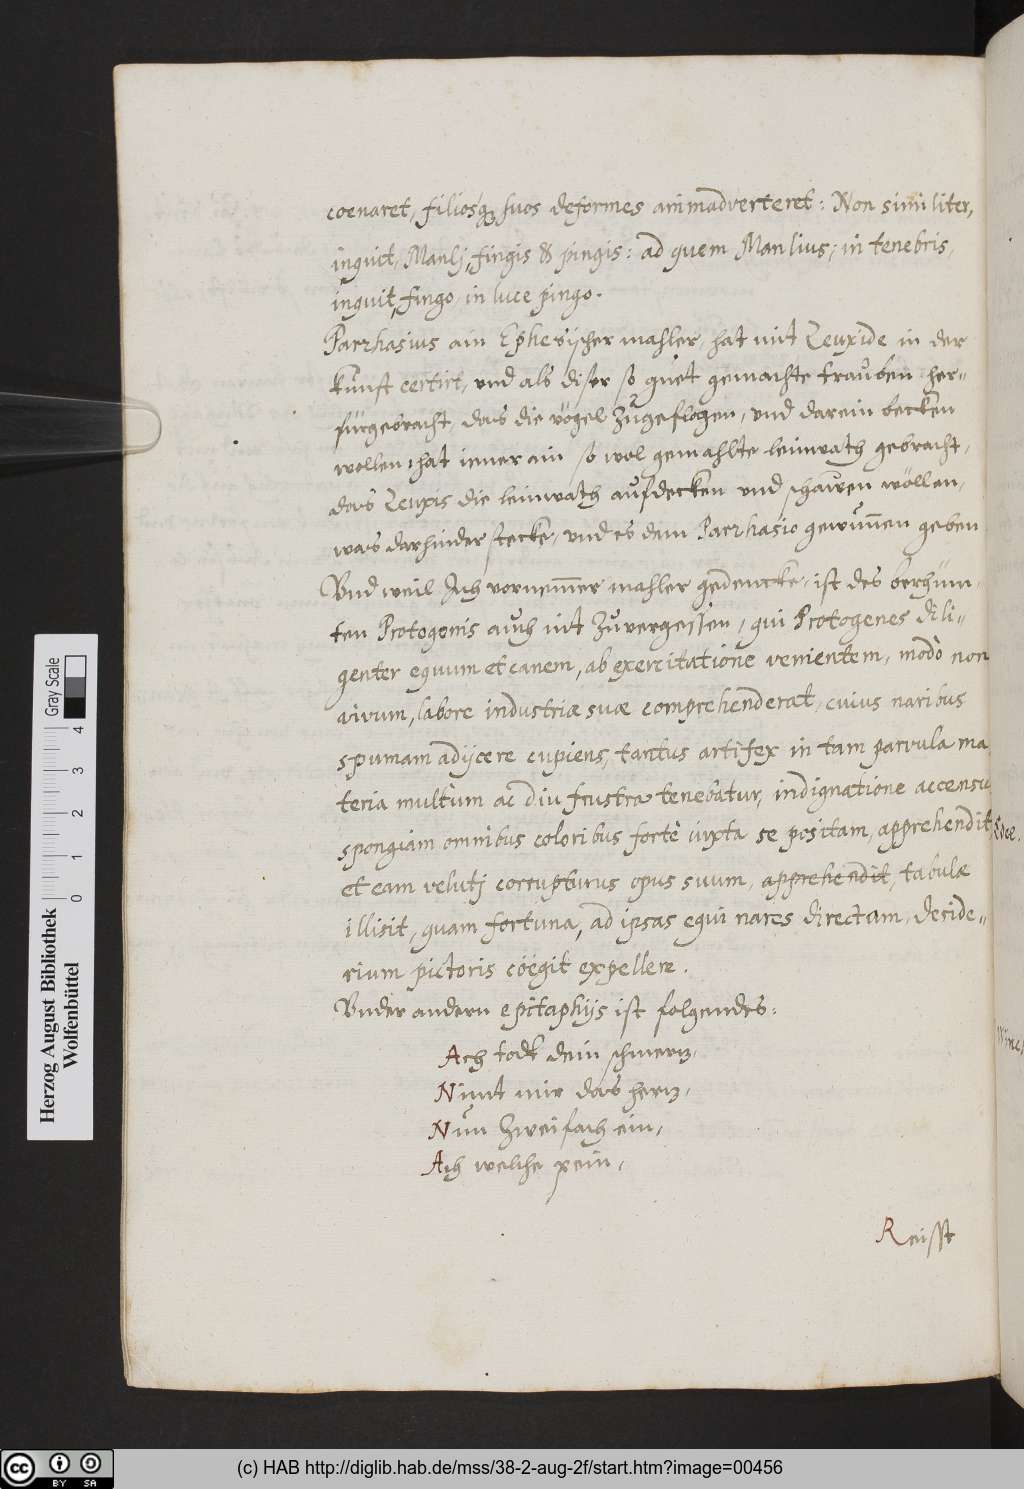 coenaret, filiosq₃ suos deformes animadverteret: Non similiter,
inquit, Manlj, fingis & pingis: ad quem Manlius; in tenebris,
inquit, fingo, in luce pingo.
Parrhasius ain Ephesischer mahler, hat mit Zeuxide in der
kunst certirt, und als diser so guet gemachte trauben her-
fürgebracht, das die vögel zugeflogen, und darein becken
wollen, hat iener ain so wol gemahlte leinwath gebracht,
das Zeuxis die leinwath aufdecken und schawen wöllen,
was darhinder stecke, und es dem Parrhasio gewunnen geben
Vnd weil Ich vornemmer mahler gedencke, ist des berhüm-
ten Protogenis auch nit zuvergessen, qui Protogenes dili-
genter equum et canem, ab exercitatione venientem, modò non
vivum, labore industriæ suæ comprehenderat, cuius naribus
spumam adijcere cupiens, tantus artifex in tam parvula ma
teria multùm ac diu frustra tenebatur, indignatione accensu
spongiam omnibus coloribus fortè iuxta se positam, apprehendit
et eam velutj corrupturus opus suum, apprehendit, tabulæ
illisit, quam fortuna, ad ipsas equi nares directam, deside-
rium pictoris cöegit expellere.
Vnder andern epitaphijs ist folgendes:
Ach todt dein schmerz,
Nimt mir das herz,
Nun zweifach ein,
Ach welche pein,
Reisst
Herzog August Bibliothek
Wolfenbüttel
0 1 2 3 4
Gray Scale
cc BY SA
(c) HAB http://diglib.hab.de/mss/38-2-aug-2f/start.htm?image=00456